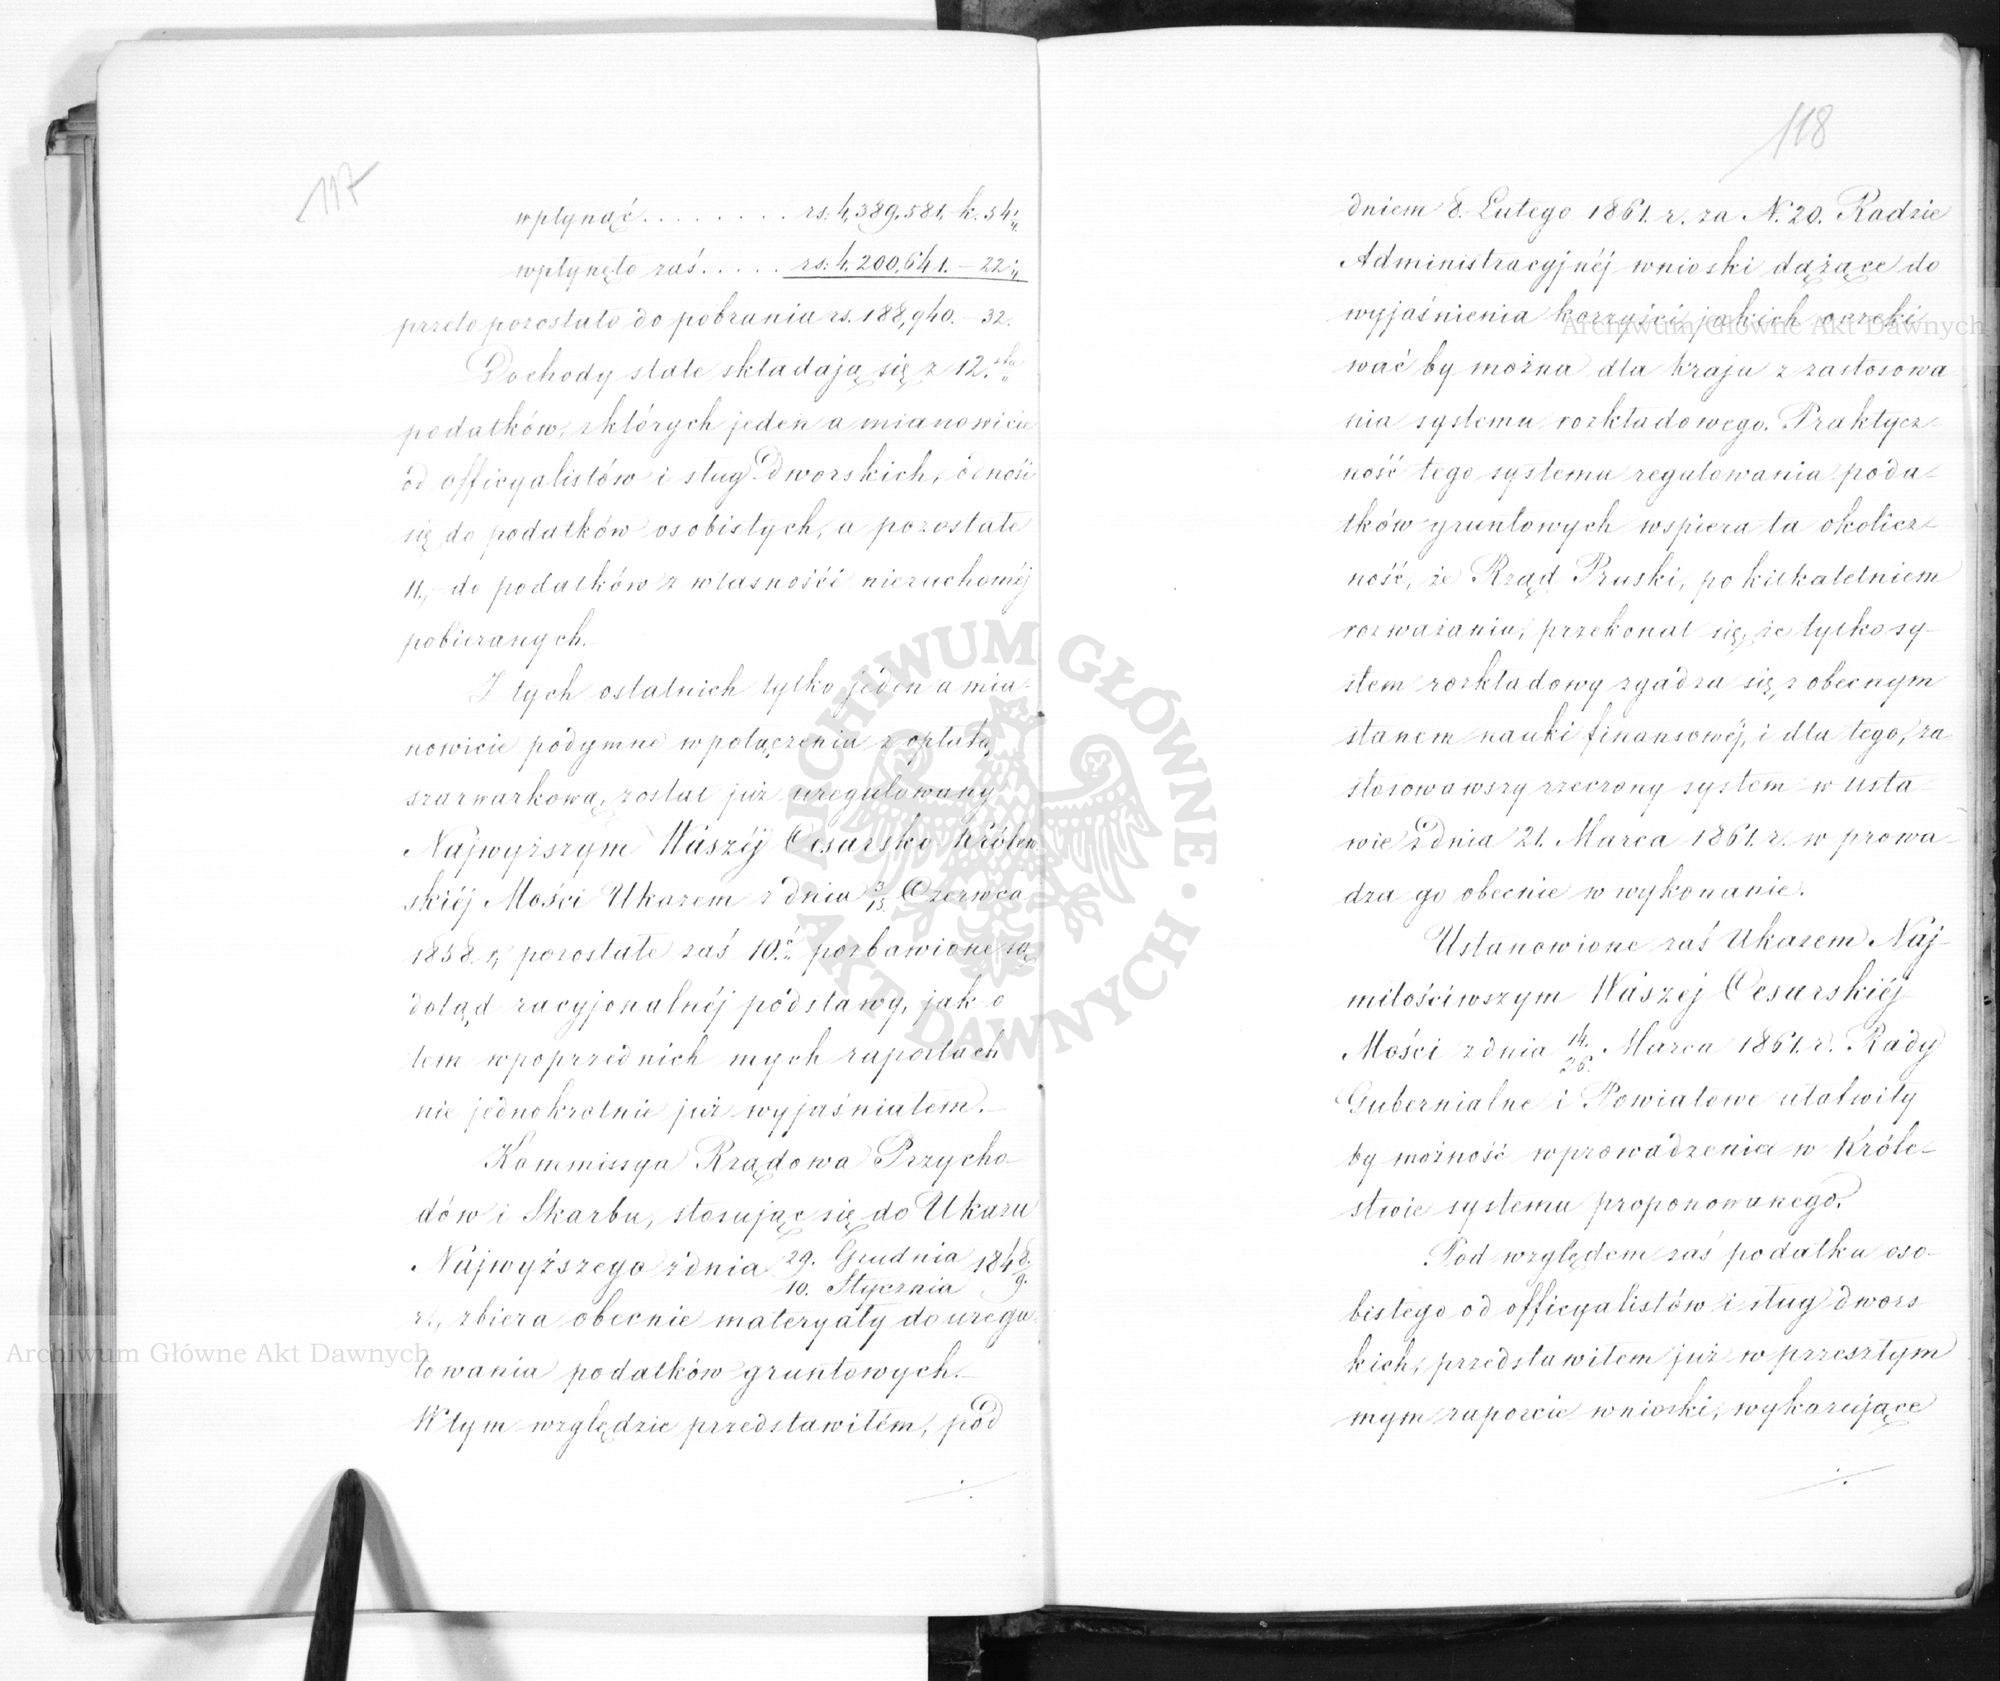 117
wpłynąć . . . . . . . . rs: 4,389,581, k. 54½
wpłynęło zaś . . . . . rs: 4,200,641. – 22½
przeto pozostało do pobrania rs. 188,940. – 32.
Dochody stałe składają się z 12.stu
podatków, z których jeden a mianowicie
od officyalistów i sług Dworskich, odnosi
się do podatków osobistych, a pozostałe
11., do podatków z własności nieruchoméj
pobieranych.
Z tych ostatnich tylko jeden a mia-
nowicie podymne w połączeniu z opłatą
szarwarkową, został już uregulowany
Najwyższym Waszéj Cesarsko Królew-
skiéj Mości Ukazem z dnia 3/15. Czerwca
1858. r., pozostałe zaś 10.ć pozbawione są
dotąd racyjonalnéj podstawy, jak o
tem w poprzednich mych raportach
nie jednokrotnie już wyjaśniałem.
Kommissya Rządowa Przycho-
dów i Skarbu, stosując się do Ukazu
Najwyższego z dnia 29. Grudnia / 10. Stycznia 184 8/9.
r., zbiera obecnie materyały do uregu-
lowania podatków gruntowych.
W tym względzie przedstawiłem, pod
118
dniem 8. Lutego 1861. r. za N. 20. Radzie
Administracyjnéj wnioski dążące do
wyjaśnienia korzyści, jakich oczeki
wać by można dla kraju z zastosowa
nia systemu rozkładowego. Praktycz-
ność tego systemu regulowania poda-
tków gruntowych wspiera ta okolicz-
ność, że Rząd Pruski, po kilkaletniem
rozważaniu, przekonał się, że tylko sy-
stem rozkładowy zgadza się z obecnym
stanem nauki finansowéj, i dla tego, za
stosowawszy rzeczony system w usta-
wie z dnia 21. Marca 1861. r. w prowa-
dza go obecnie w wykonanie.
Ustanowione zaś Ukazem Naj-
miłościwszym Waszej Cesarskiéj
Mości z dnia 14./26. Marca 1861. r. Rady
Gubernialne i Powiatowe ułatwiły
by możność wprowadzenia w Króle-
stwie systemu proponowanego.
Pod względem zaś podatku oso-
bistego od officyalistów i sług dwors
kich, przedstawiłem już w przeszłym
mym raporcie wnioski, wykazujące
Archiwum Główne Akt Dawnych
Archiwum Główne Akt Dawnych
ARCHIWUM GŁÓWNE · AKT DAWNYCH ·